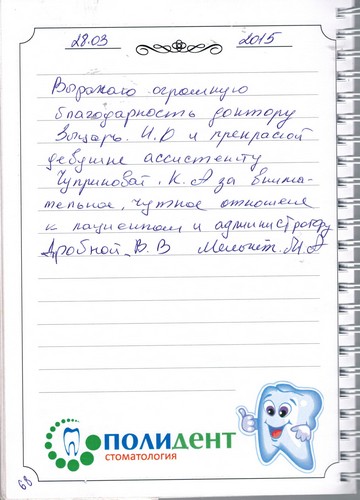 28.03 2015
Выражаю огромную
благодарность доктору
Зыцарь И.Ю и прекрасной
девушке ассистенту
Чуприновой К. А за внима-
тельное, чуткое отношение
к пациентам и администратору
Дробной В. В М.А
ПОЛИДЕНТ
СТОМАТОЛОГИЯ
68